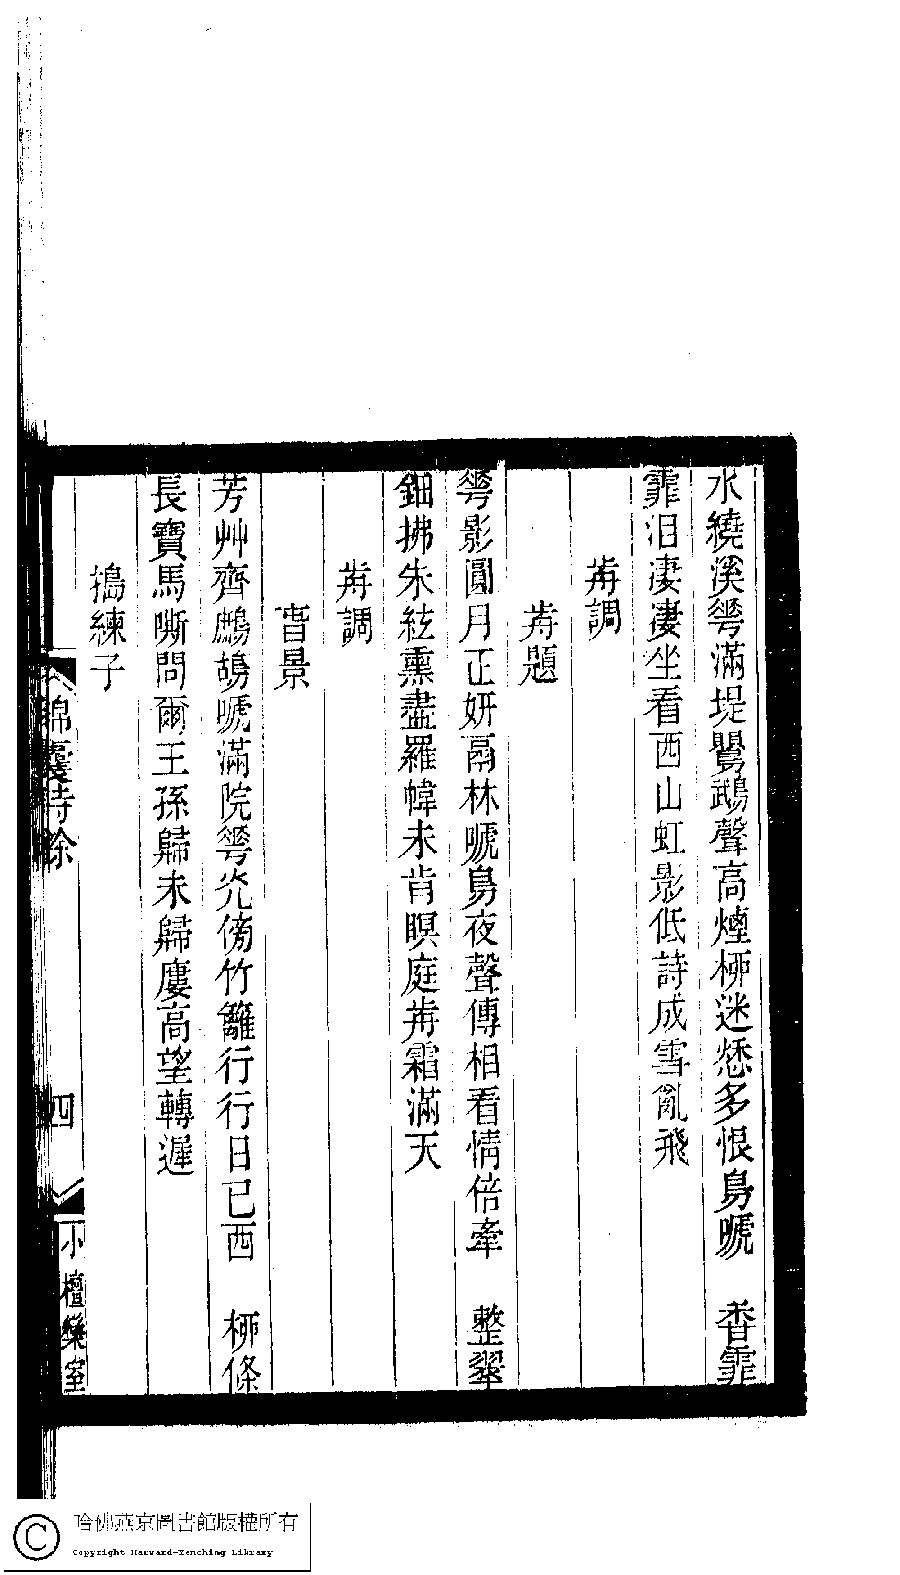 水繞溪芲滿堤鸎鵡聲高煙桺迷愁多恨鳥嗁　香霏
霏泪凄凄坐看西山虹影低詩成雪亂飛
歬調
歬題
芲影圓月正妍鬲林嗁鳥夜聲傳相看情倍牽　整翠
鈿拂朱絃熏盡羅幃未肯瞑庭歬霜滿天
歬調
萅景
芳艸齊鷓鴣嗁滿院芲光傍竹籬行行日已西　桺條
長寶馬嘶問爾王孫歸未歸廔高望轉遲
搗練子
錦囊詩餘
四
小檀欒室
哈佛燕京圖書館版權所有
Copyright Harvard-Yenching Library